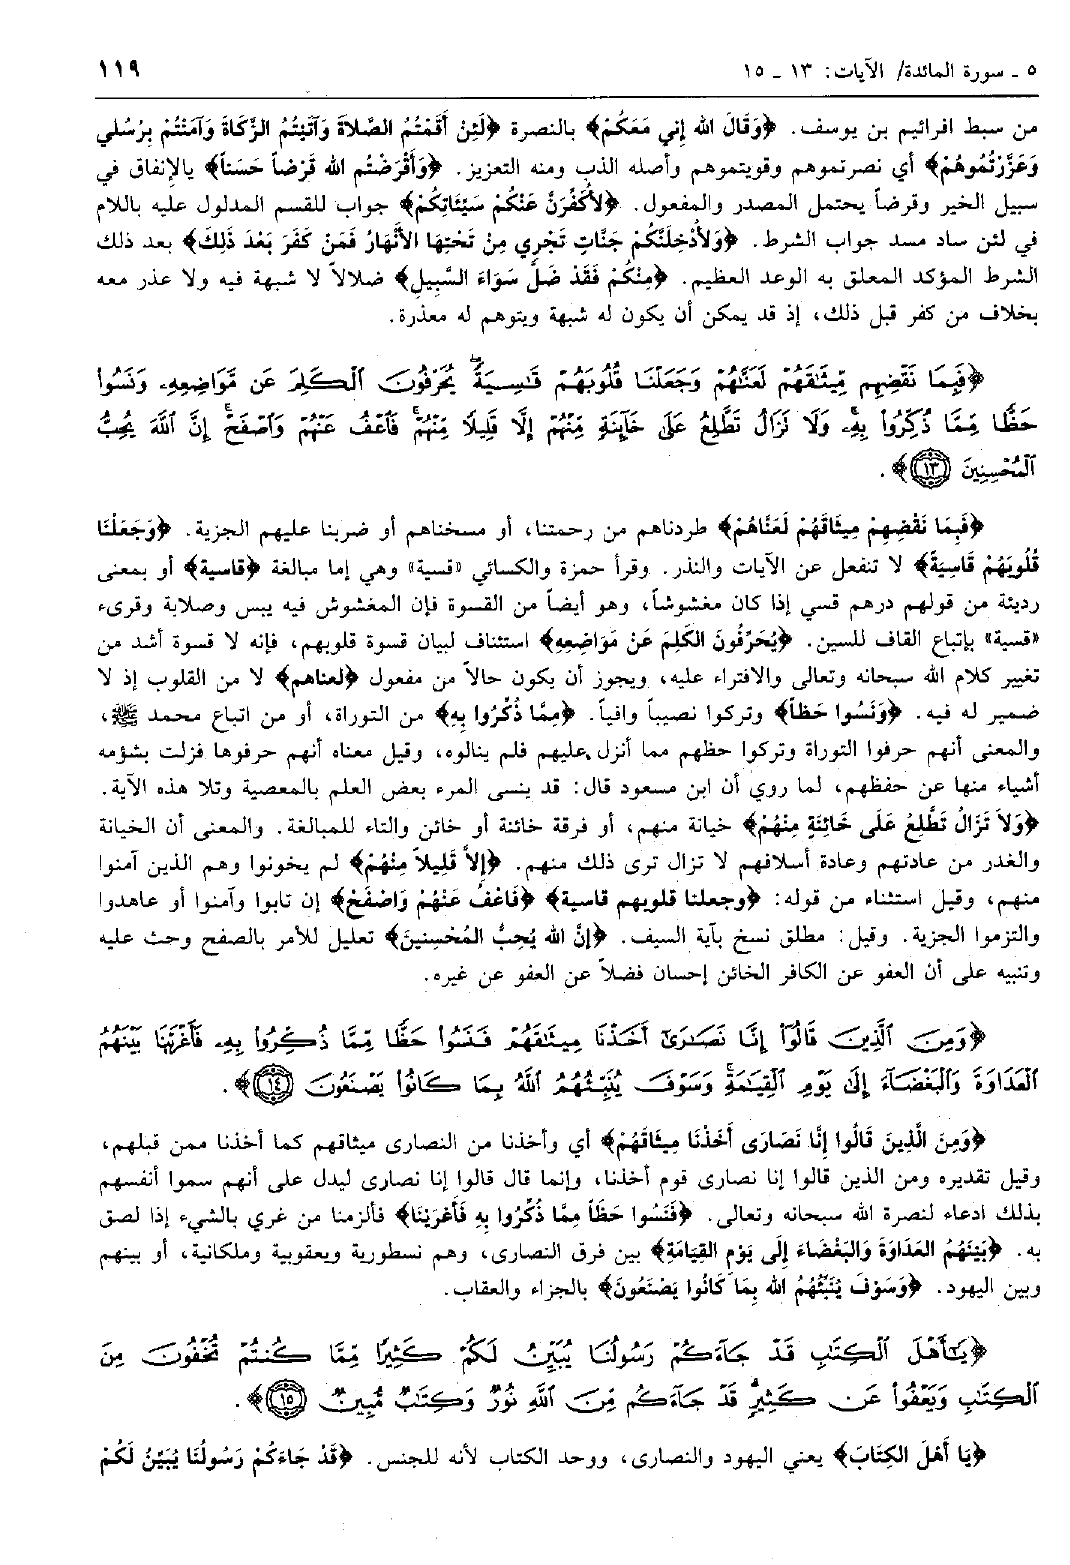 ٥ ـ سورة المائدة/ الآيات: ١٣ ـ ١٥ ١١٩
من سبط افرائيم بن يوسف. ﴿وَقَالَ الله إِني مَعَكُمْ﴾ بالنصرة ﴿لَئِنْ أَقَمْتُمُ الصَّلاَةَ وَآتَيْتُمُ الزَّكَاةَ وَآمَنْتُمْ بِرُسُلي
وَعَزَّرْتُمُوهُمْ﴾ أي نصرتموهم وقويتموهم وأصله الذب ومنه التعزير. ﴿وَأَقْرَضْتُم الله قَرْضاً حَسَناً﴾ بالإِنفاق في
سبيل الخير وقرضاً يحتمل المصدر والمفعول. ﴿لأُكَفِّرَنَّ عَنْكُم سَيِّئَاتِكُمْ﴾ جواب للقسم المدلول عليه باللام
في لئن ساد مسد جواب الشرط. ﴿وَلأُدْخِلَنَّكُمْ جَنَّاتٍ تَجْرِي مِنْ تَحْتِهَا الأَنْهَارُ فَمَن كَفَرَ بَعْدَ ذَلِكَ﴾ بعد ذلك
الشرط المؤكد المعلق به الوعد العظيم. ﴿مِنْكُمْ فَقَدْ ضَلَّ سَوَاءَ السَّبِيلِ﴾ ضلالاً لا شبهة فيه ولا عذر معه
بخلاف من كفر قبل ذلك، إذ قد يمكن أن يكون له شبهة ويتوهم له معذرة.
﴿فَبِمَا نَقْضِهِم مِّيثَٰقَهُمْ لَعَنَّٰهُمْ وَجَعَلْنَا قُلُوبَهُمْ قَٰسِيَةً ۖ يُحَرِّفُونَ ٱلْكَلِمَ عَن مَّوَاضِعِهِۦ وَنَسُوا۟
حَظًّا مِّمَّا ذُكِّرُوا۟ بِهِۦ ۚ وَلَا تَزَالُ تَطَّلِعُ عَلَىٰ خَآئِنَةٍ مِّنْهُمْ إِلَّا قَلِيلًا مِّنْهُمْ ۖ فَٱعْفُ عَنْهُمْ وَٱصْفَحْ ۚ إِنَّ ٱللَّهَ يُحِبُّ
ٱلْمُحْسِنِينَ ١٣﴾.
﴿فَبِمَا نَقْضِهِمْ مِيثَاقَهُمْ لَعَنَّاهُمْ﴾ طردناهم من رحمتنا، أو مسخناهم أو ضربنا عليهم الجزية. ﴿وَجَعَلْنَا
قُلُوبَهُمْ قَاسِيَةً﴾ لا تنفعل عن الآيات والنذر. وقرأ حمزة والكسائي «قسية» وهي إما مبالغة ﴿قاسية﴾ أو بمعنى
رديئة من قولهم درهم قسي إذا كان مغشوشاً، وهو أيضاً من القسوة فإن المغشوش فيه يبس وصلابة وقرىء
«قسية» بإتباع القاف للسين. ﴿يُحَرِّفُونَ الكَلِمَ عَنْ مَوَاضِعِهِ﴾ استئناف لبيان قسوة قلوبهم، فإنه لا قسوة أشد من
تغيير كلام الله سبحانه وتعالى والافتراء عليه، ويجوز أن يكون حالاً من مفعول ﴿لعناهم﴾ لا من القلوب إذ لا
ضمير له فيه. ﴿وَنَسُوا حَظاً﴾ وتركوا نصيباً وافياً. ﴿مِمَّا ذُكِّرُوا بِهِ﴾ من التوراة، أو من اتباع محمد ﷺ،
والمعنى أنهم حرفوا التوراة وتركوا حظهم مما أنزل عليهم فلم ينالوه، وقيل معناه أنهم حرفوها فزلت بشؤمه
أشياء منها عن حفظهم، لما روي أن ابن مسعود قال: قد ينسى المرء بعض العلم بالمعصية وتلا هذه الآية.
﴿وَلاَ تَزَالُ تَطَّلِعُ عَلَى خَائِنَةٍ مِنْهُمْ﴾ خيانة منهم، أو فرقة خائنة أو خائن والتاء للمبالغة. والمعنى أن الخيانة
والغدر من عادتهم وعادة أسلافهم لا تزال ترى ذلك منهم. ﴿إِلاَّ قَلِيلاً مِنْهُمْ﴾ لم يخونوا وهم الذين آمنوا
منهم، وقيل استثناء من قوله: ﴿وجعلنا قلوبهم قاسية﴾ ﴿فَاعْفُ عَنْهُمْ وَاصْفَحْ﴾ إن تابوا وآمنوا أو عاهدوا
والتزموا الجزية. وقيل: مطلق نسخ بآية السيف. ﴿إِنَّ الله يُحِبُّ المُحْسِنِينَ﴾ تعليل للأمر بالصفح وحث عليه
وتنبيه على أن العفو عن الكافر الخائن إحسان فضلاً عن العفو عن غيره.
﴿وَمِنَ ٱلَّذِينَ قَالُوٓا۟ إِنَّا نَصَٰرَىٰٓ أَخَذْنَا مِيثَٰقَهُمْ فَنَسُوا۟ حَظًّا مِّمَّا ذُكِّرُوا۟ بِهِۦ فَأَغْرَيْنَا بَيْنَهُمُ
ٱلْعَدَاوَةَ وَٱلْبَغْضَآءَ إِلَىٰ يَوْمِ ٱلْقِيَٰمَةِ ۚ وَسَوْفَ يُنَبِّئُهُمُ ٱللَّهُ بِمَا كَانُوا۟ يَصْنَعُونَ ١٤﴾.
﴿وَمِنَ الَّذِينَ قَالُوا إِنَّا نَصَارَى أَخَذْنَا مِيثَاقَهُمْ﴾ أي وأخذنا من النصارى ميثاقهم كما أخذنا ممن قبلهم،
وقيل تقديره ومن الذين قالوا إنا نصارى قوم أخذنا، وإنما قال قالوا إنا نصارى ليدل على أنهم سموا أنفسهم
بذلك ادعاء لنصرة الله سبحانه وتعالى. ﴿فَنَسُوا حَظاً مِمَّا ذُكِّرُوا بِهِ فَأَغْرَيْنَا﴾ فألزمنا من غري بالشيء إذا لصق
به. ﴿بَيْنَهُمُ العَدَاوَةَ وَالبَغْضَاءَ إِلَى يَوْمِ القِيَامَةِ﴾ بين فرق النصارى، وهم نسطورية ويعقوبية وملكانية، أو بينهم
وبين اليهود. ﴿وَسَوْفَ يُنَبِّئُهُمُ الله بِمَا كَانُوا يَصْنَعُونَ﴾ بالجزاء والعقاب.
﴿يَٰٓأَهْلَ ٱلْكِتَٰبِ قَدْ جَآءَكُمْ رَسُولُنَا يُبَيِّنُ لَكُمْ كَثِيرًا مِّمَّا كُنتُمْ تُخْفُونَ مِنَ
ٱلْكِتَٰبِ وَيَعْفُوا۟ عَن كَثِيرٍ ۚ قَدْ جَآءَكُم مِّنَ ٱللَّهِ نُورٌ وَكِتَٰبٌ مُّبِينٌ ١٥﴾.
﴿يَا أَهْلَ الكِتَابِ﴾ يعني اليهود والنصارى، ووحد الكتاب لأنه للجنس. ﴿قَدْ جَاءَكُمْ رَسُولُنَا يُبَيِّنُ لَكُمْ